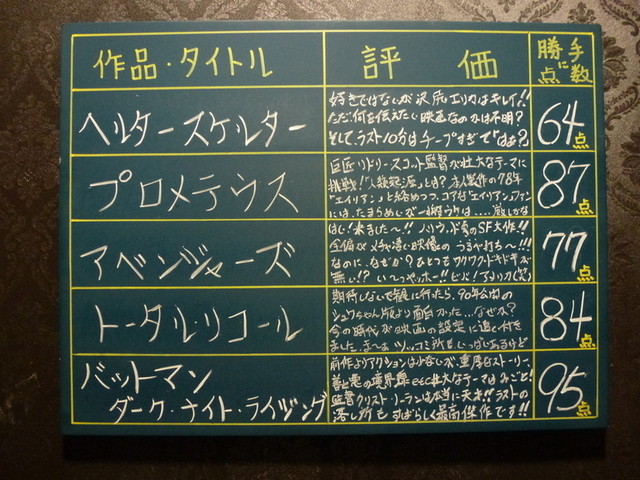 作品・タイトル 評価 勝手に点数
ヘルタースケルター
好きではないが沢尻エリカはキレイ!!
ただ何を伝えたい映画なのかは不明?
そして、ラスト10分はチープすぎて「はぁ?」
64点
プロメテウス
巨匠リドリースコット監督が壮大なテーマに
挑戦!「人類発源」とは?
「エイリアン」と絡めつつ、コアな「エイリアン」ファン
には、たまらないが一般ウケは....厳しいかな
87点
アベンジャーズ
はい!来ました~!! ノリウッド的SF大作!!
全価がメチャ凄い映像のうるさ打ち~!!!
なのに、なぜか?ひとつもワクワク・ドキドキが
無い!? い~やッホー!! ビバ!アメリカ(笑)
77点
トータル・リコール
期待しないで観に行ったら、90年公開の
シュワちゃん版より面白かった...なぜか?
今の時代が映画の設定に追い付き
ました、ま~ぁ ツッコミ所もいっぱいあるけど
84点
バットマン
ダーク・ナイト・ライヅング
前作よりアクションは少ないが、重厚なストーリー、
善と悪の境界線etc壮大なテーマはみごと!
監督クリスト・ノーランは本当に天才!!ラストの
落し所もすばらしく最高傑作です!!
95点